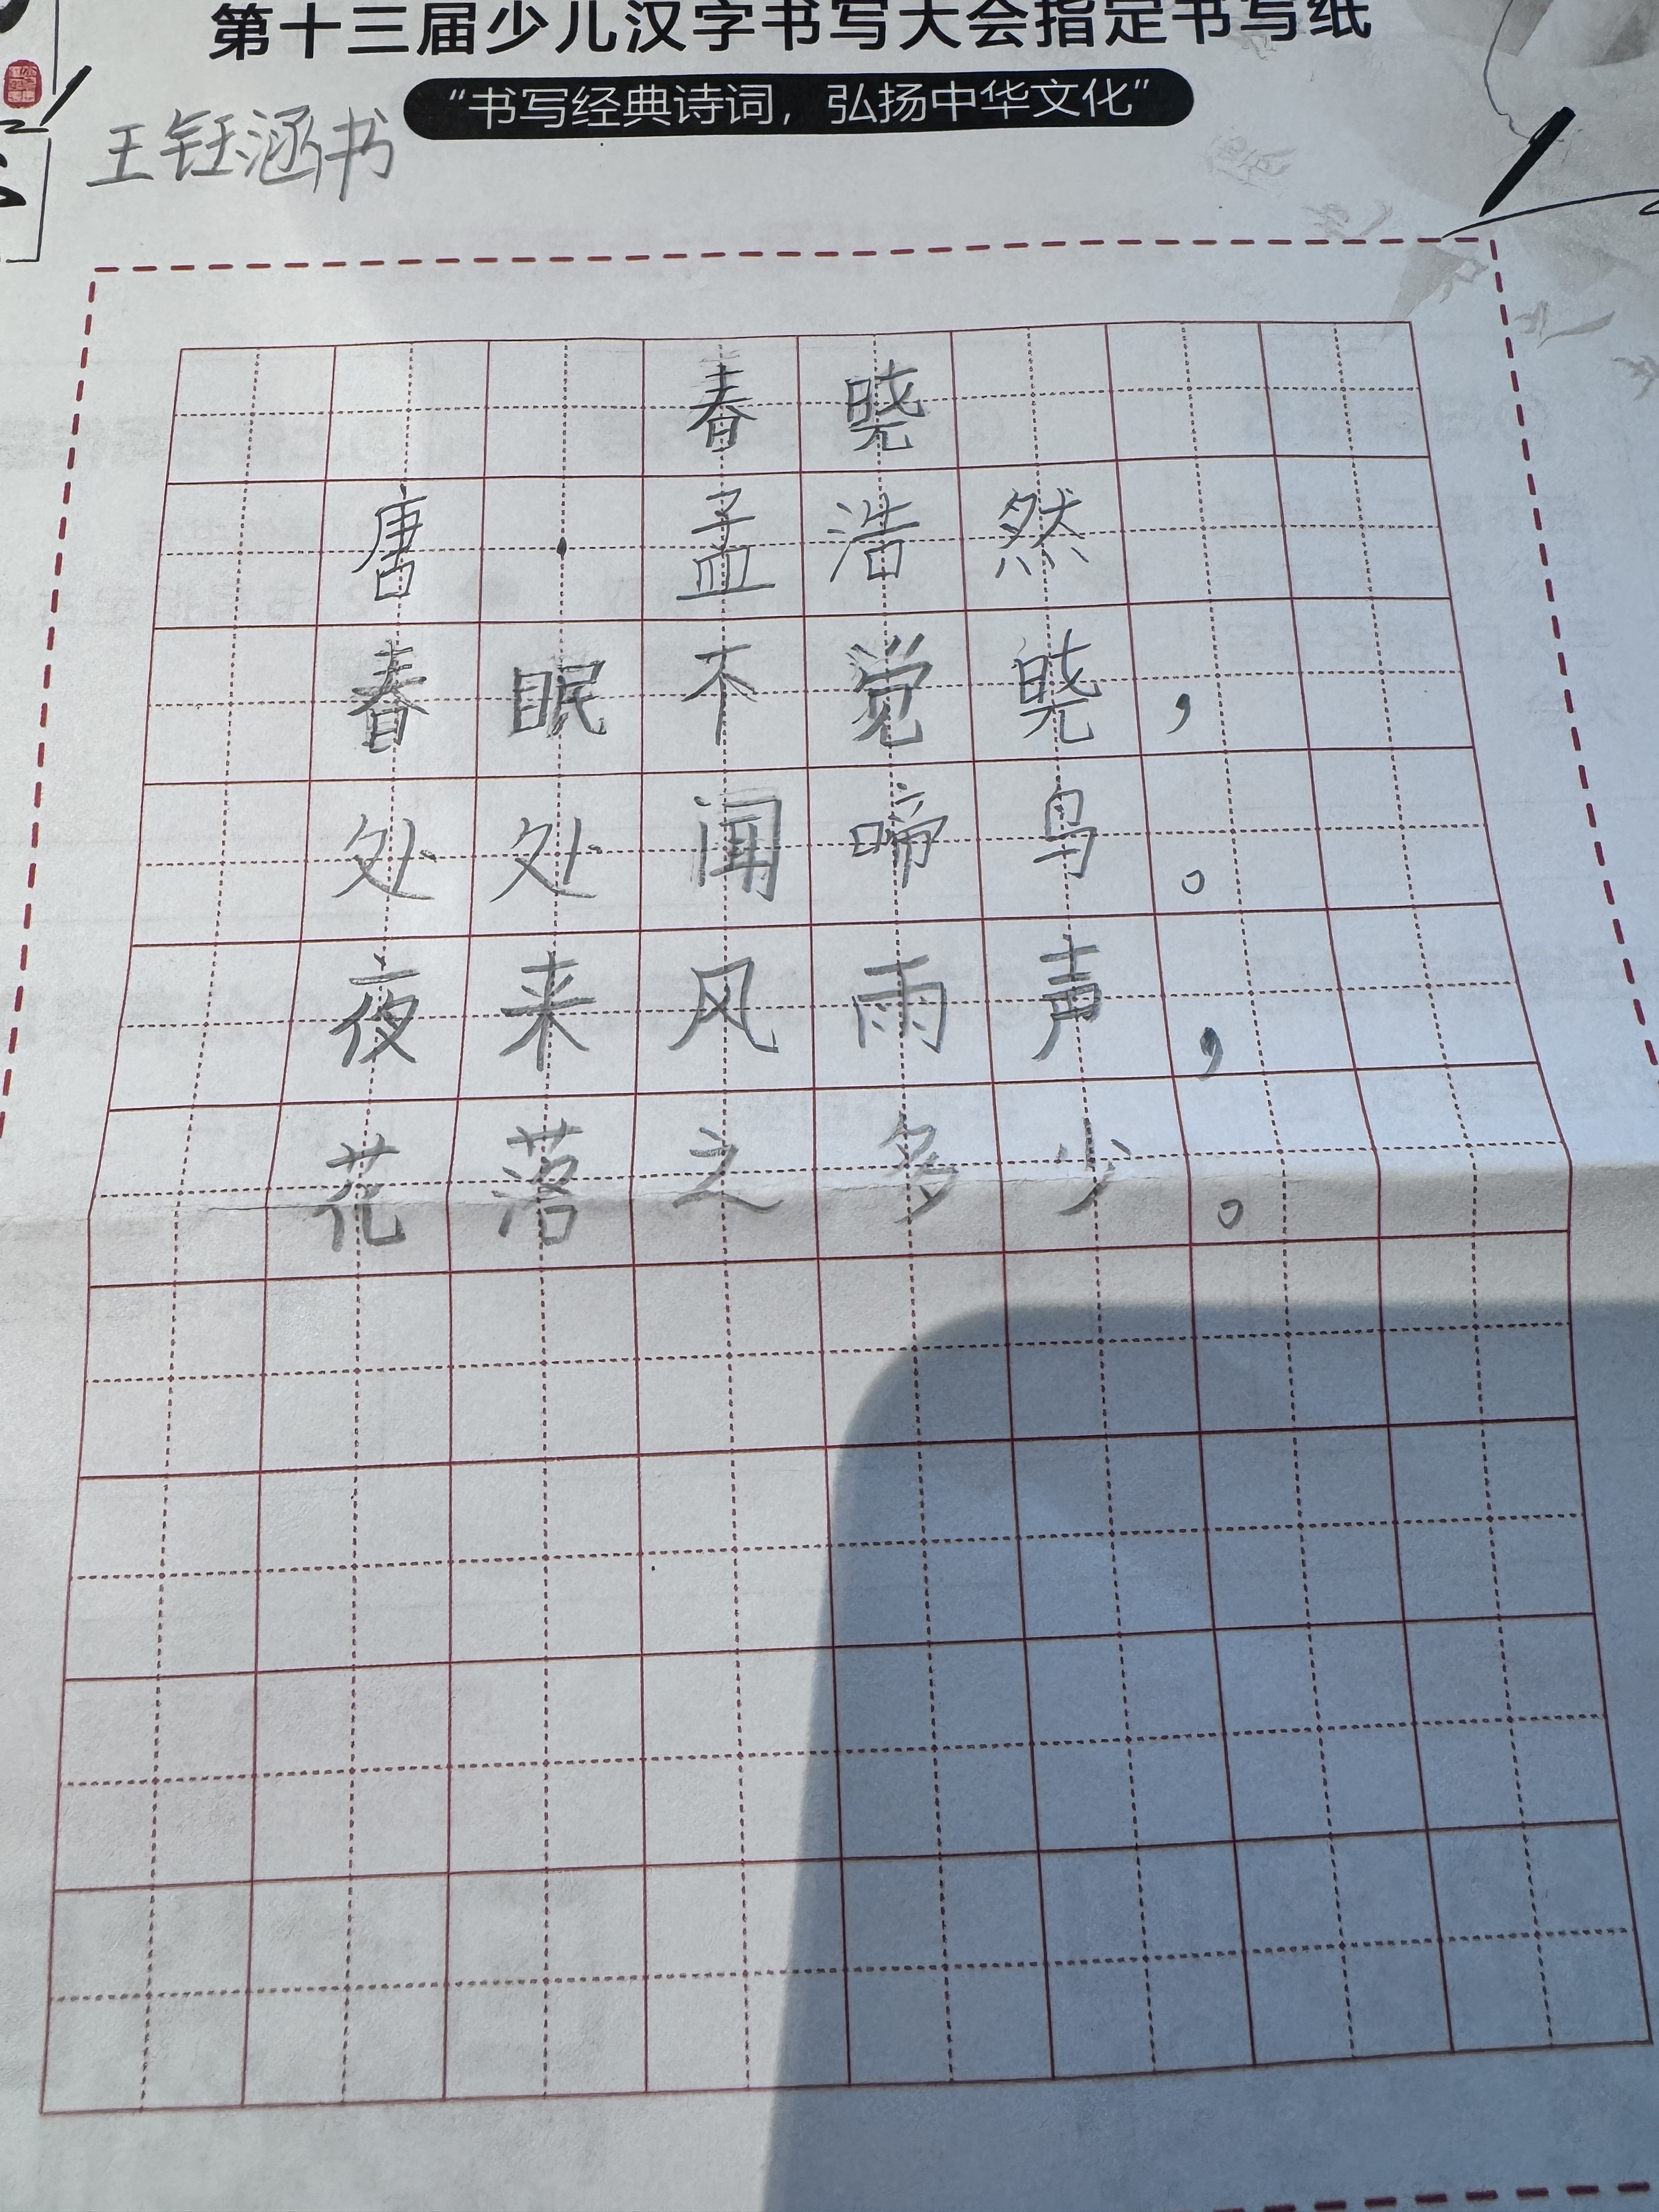 第十三届少儿汉字书写大会指定书写纸
“书写经典诗词，弘扬中华文化”
王钰涵书
春晓
唐·孟浩然
春眠不觉晓，
处处闻啼鸟。
夜来风雨声，
花落之多少。